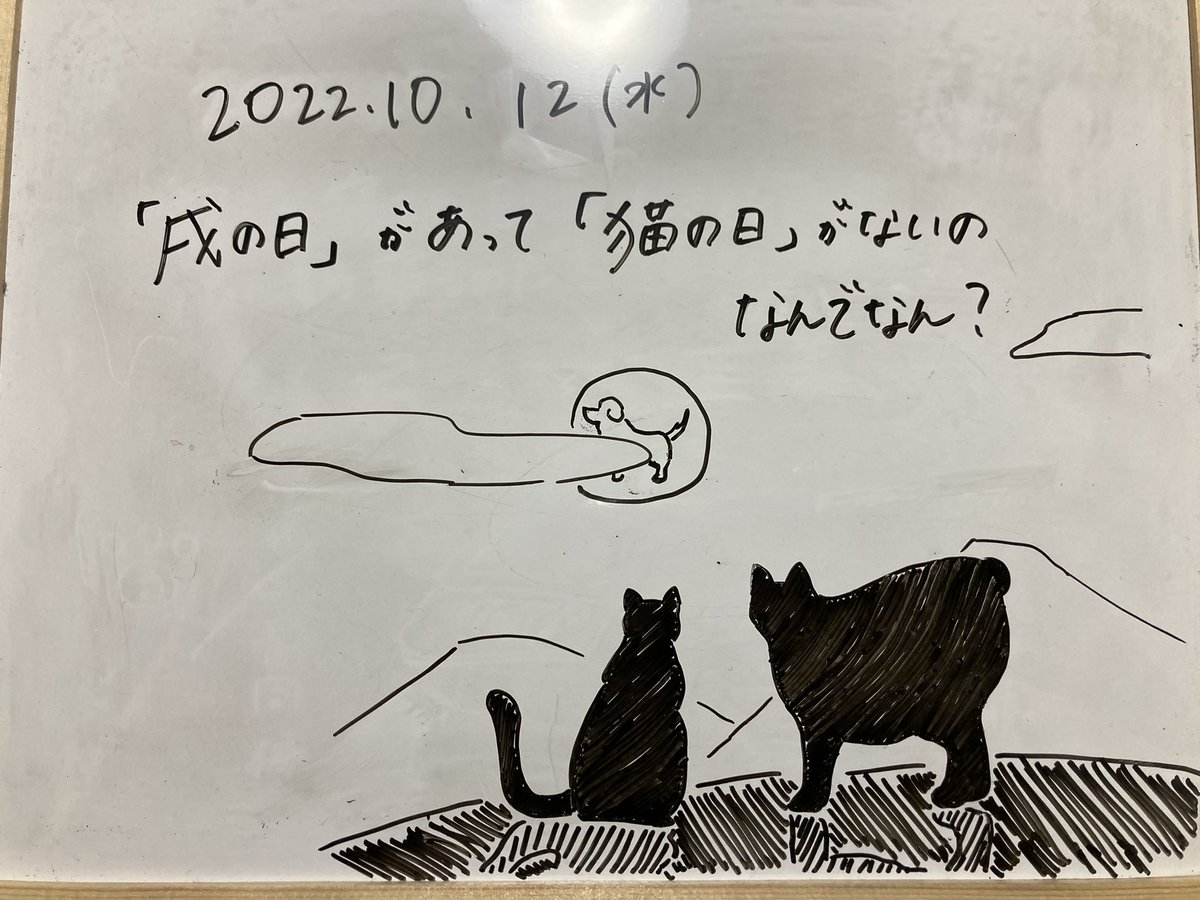 2022.10.12(水)
「戌の日」があって「猫の日」がないの
なんでなん?